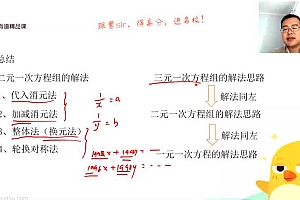 有道精品课
跟着sir，得高分，进名校！
总结
二元一次方程组的解法
1、代入消元法
2、加减消元法
3、整体法（换元法）
4、轮换对称法
1/x = a
1/y = b
三元一次方程组的解法思路
解法同左
二元一次方程组的解法思路
解法同左
一元一次方程的解法思路